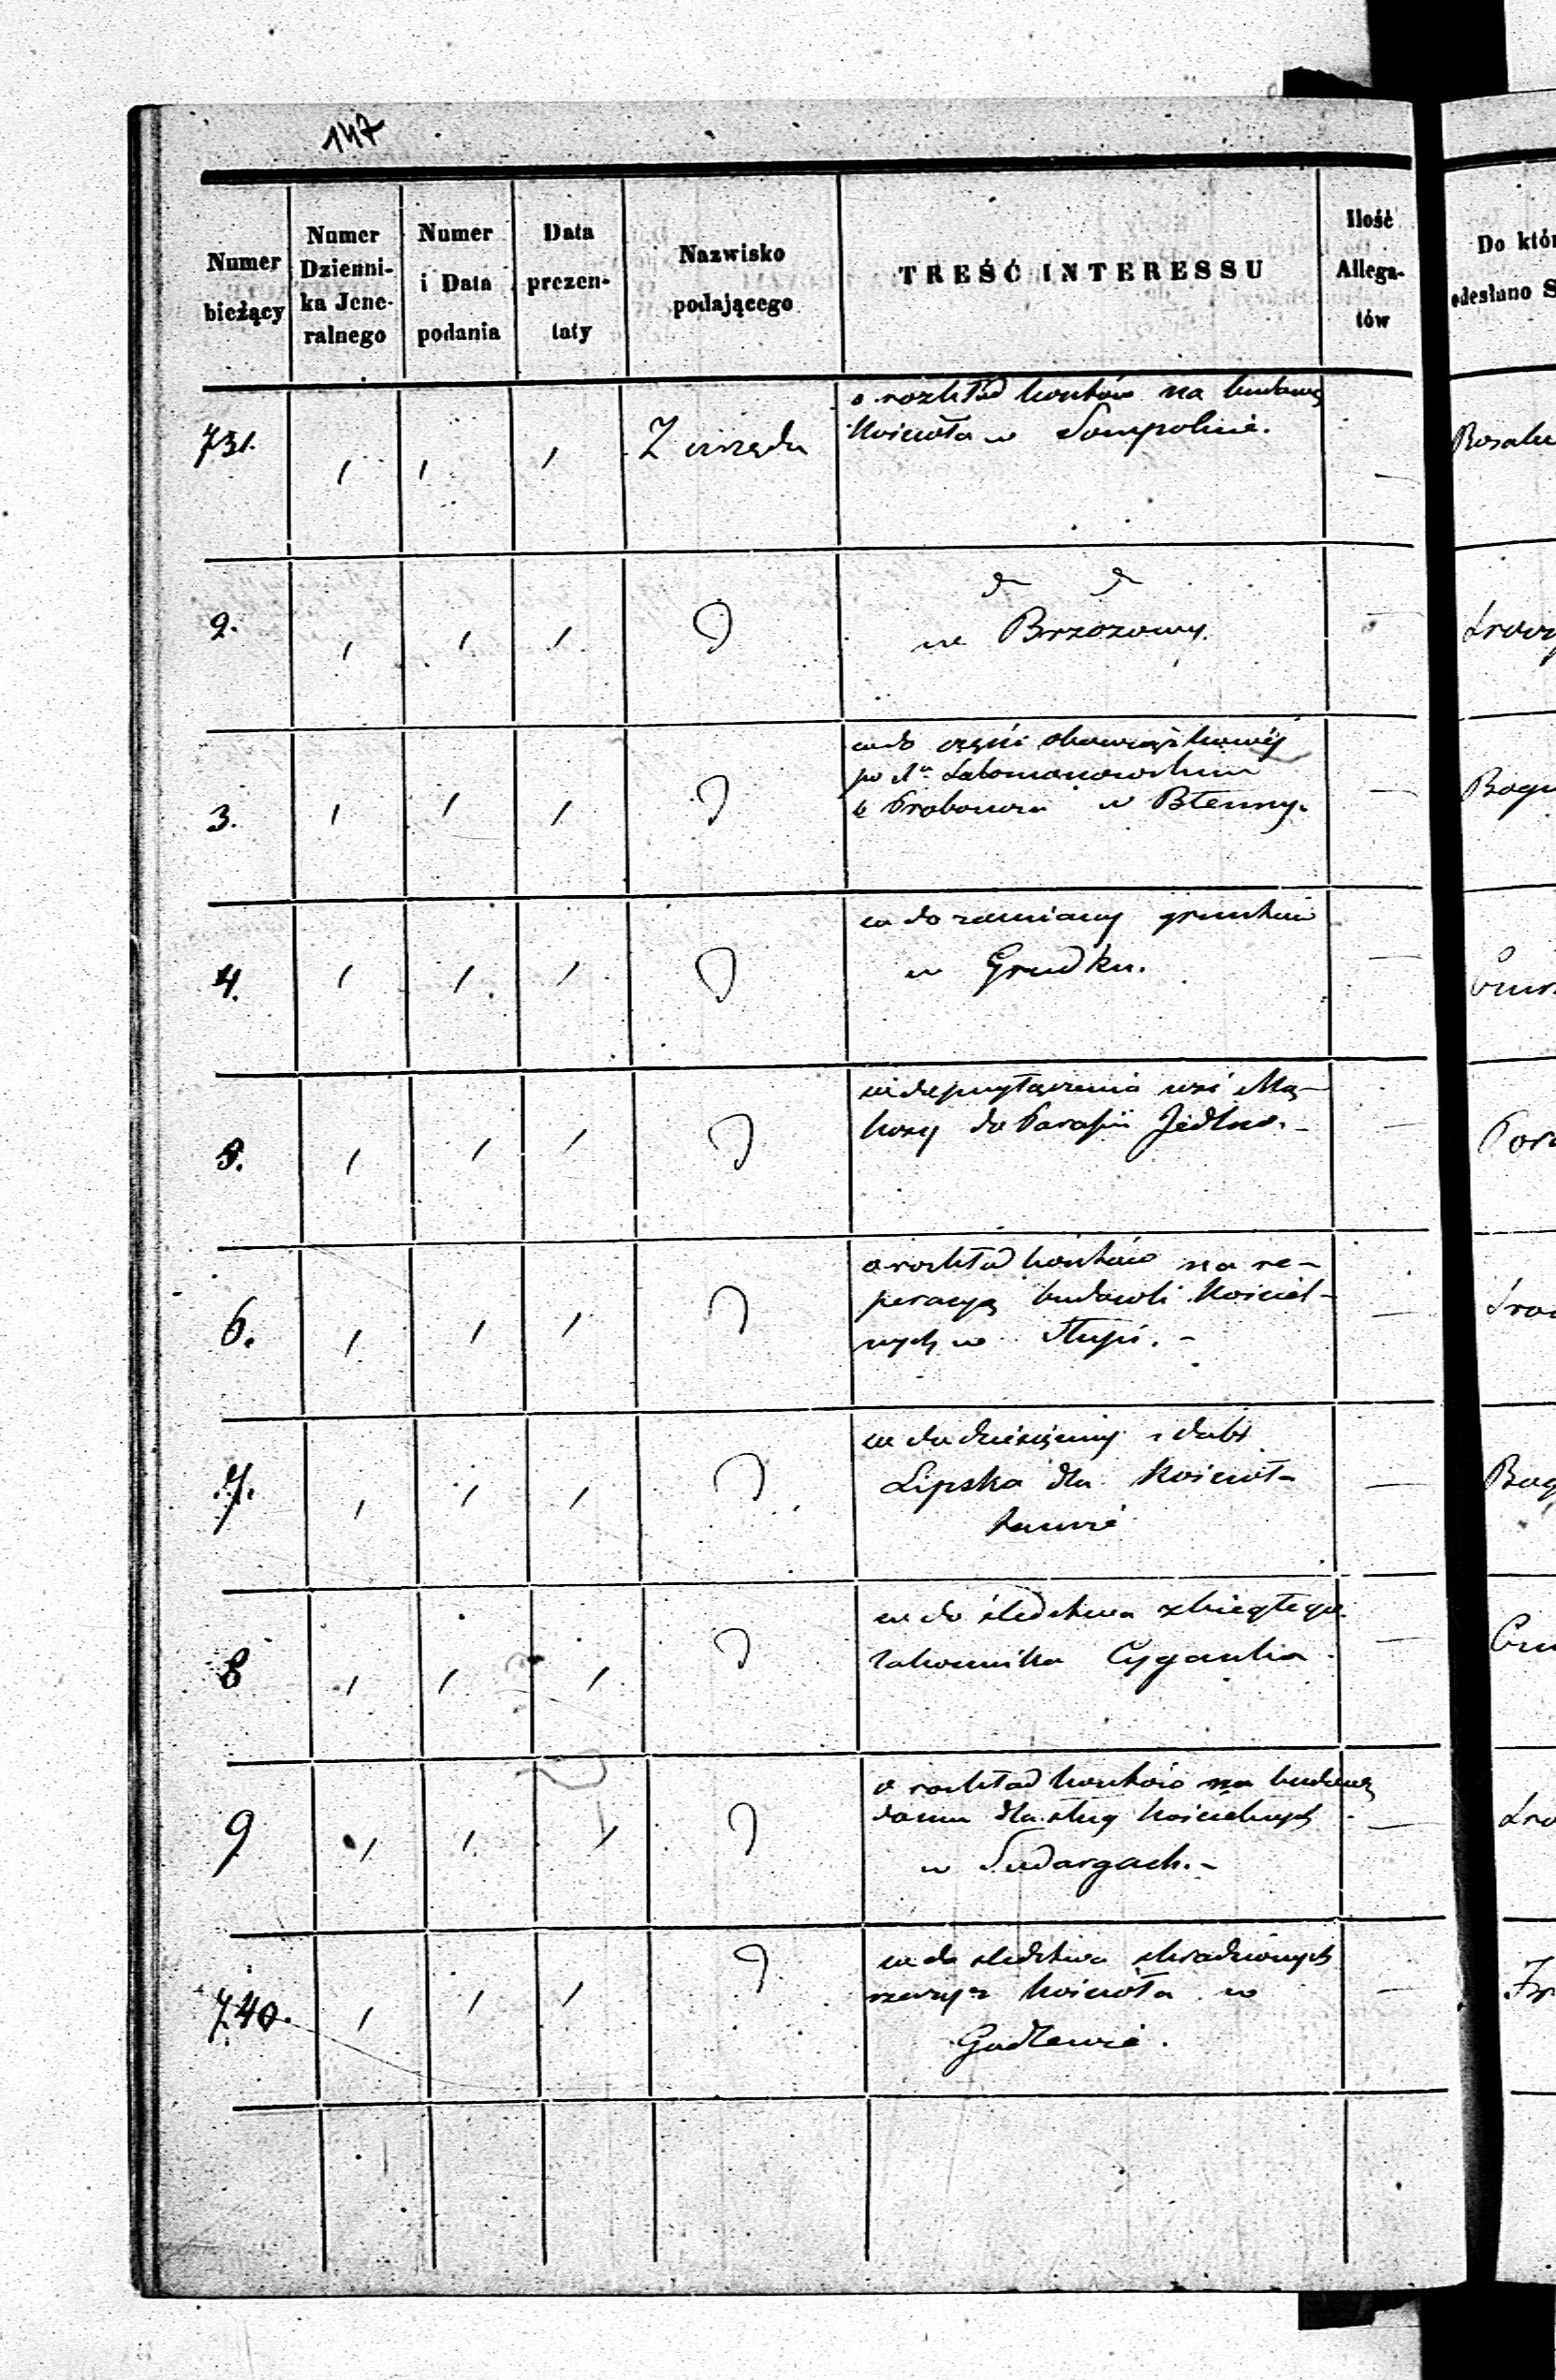 147
Numer bieżący
Numer Dzienni-ka Jene-ralnego
Numer i Data podania
Data prezen-taty
Nazwisko podającego
TREŚĆ INTERESSU
Ilość Allega-tów
Do któr
odesłano S
731. Z urzędu
o rozkład kosztów na budowę
Kościoła w Sompolnie.
Bosalu
2.
we Brzozowy.
3.
części obowiązkowéj
po
Proboszcza w Błenny.
Bogu
4.
w do zamiany gruntów
w Grudku.
5.
w do przyłączenia wsi Mą-
kosy do Parafii Jedlno.-
6.
o rozkład kosztów na re-
peracyą budowli Kościel-
nych w Słupi.-
7.
w do dziesięciny z dóbr
Lipska dla Kościoła
8
w do śledztwa zbiegłego
Zakonnika Cygankia
9
o rozkład kosztów na budowę
domu dla sług kościelnych
w Sudargach.-
740.
w do śledztwa skradzionych
rzeczy z kościoła w
Godlewie.